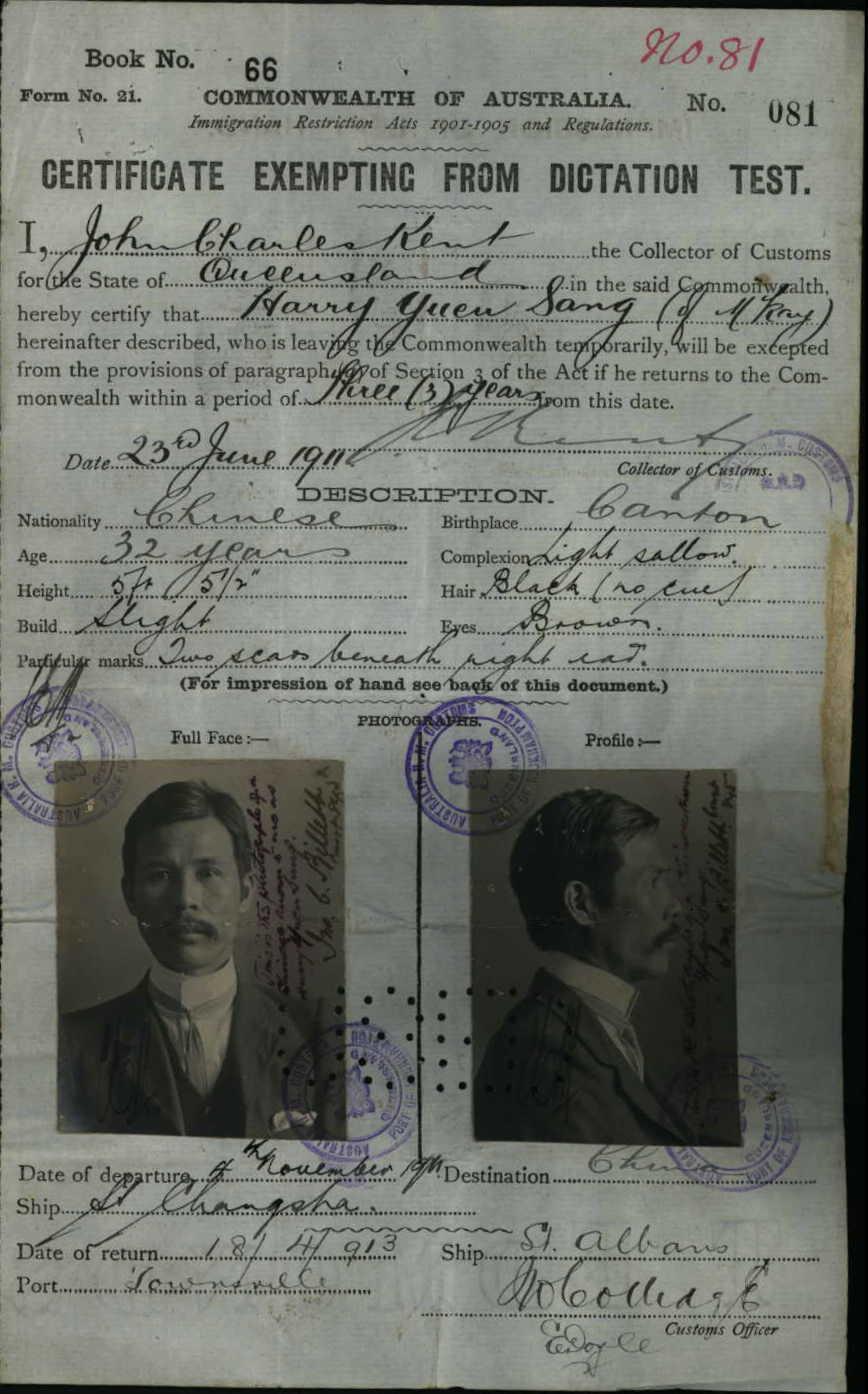 No. 81
Book No. 66
Form No. 21. COMMONWEALTH OF AUSTRALIA. No. 081
Immigration Restriction Acts 1901-1905 and Regulations.
CERTIFICATE EXEMPTING FROM DICTATION TEST.
I, John Charles Kent the Collector of Customs
for the State of Queensland in the said Commonwealth,
hereby certify that Harry Yuen Sang (of McKay)
hereinafter described, who is leaving the Commonwealth temporarily, will be excepted
from the provisions of paragraph of Section 3 of the Act if he returns to the Com-
monwealth within a period of Three (3) years from this date.
Date 23rd June 1911 Collector of Customs.
DESCRIPTION.
Nationality Chinese Birthplace Canton
Age 32 years Complexion Light sallow.
Height 5ft 5½" Hair Black (no cue)
Build Slight Eyes Brown.
Particular marks Two scars beneath right ear.
(For impression of hand see back of this document.)
PHOTOGRAPHS.
Full Face:— Profile:—
Date of departure 4th November 1911 Destination China
Ship Changsha.
Date of return 18/4/913 Ship St. Albans
Port Townsville
Customs Officer